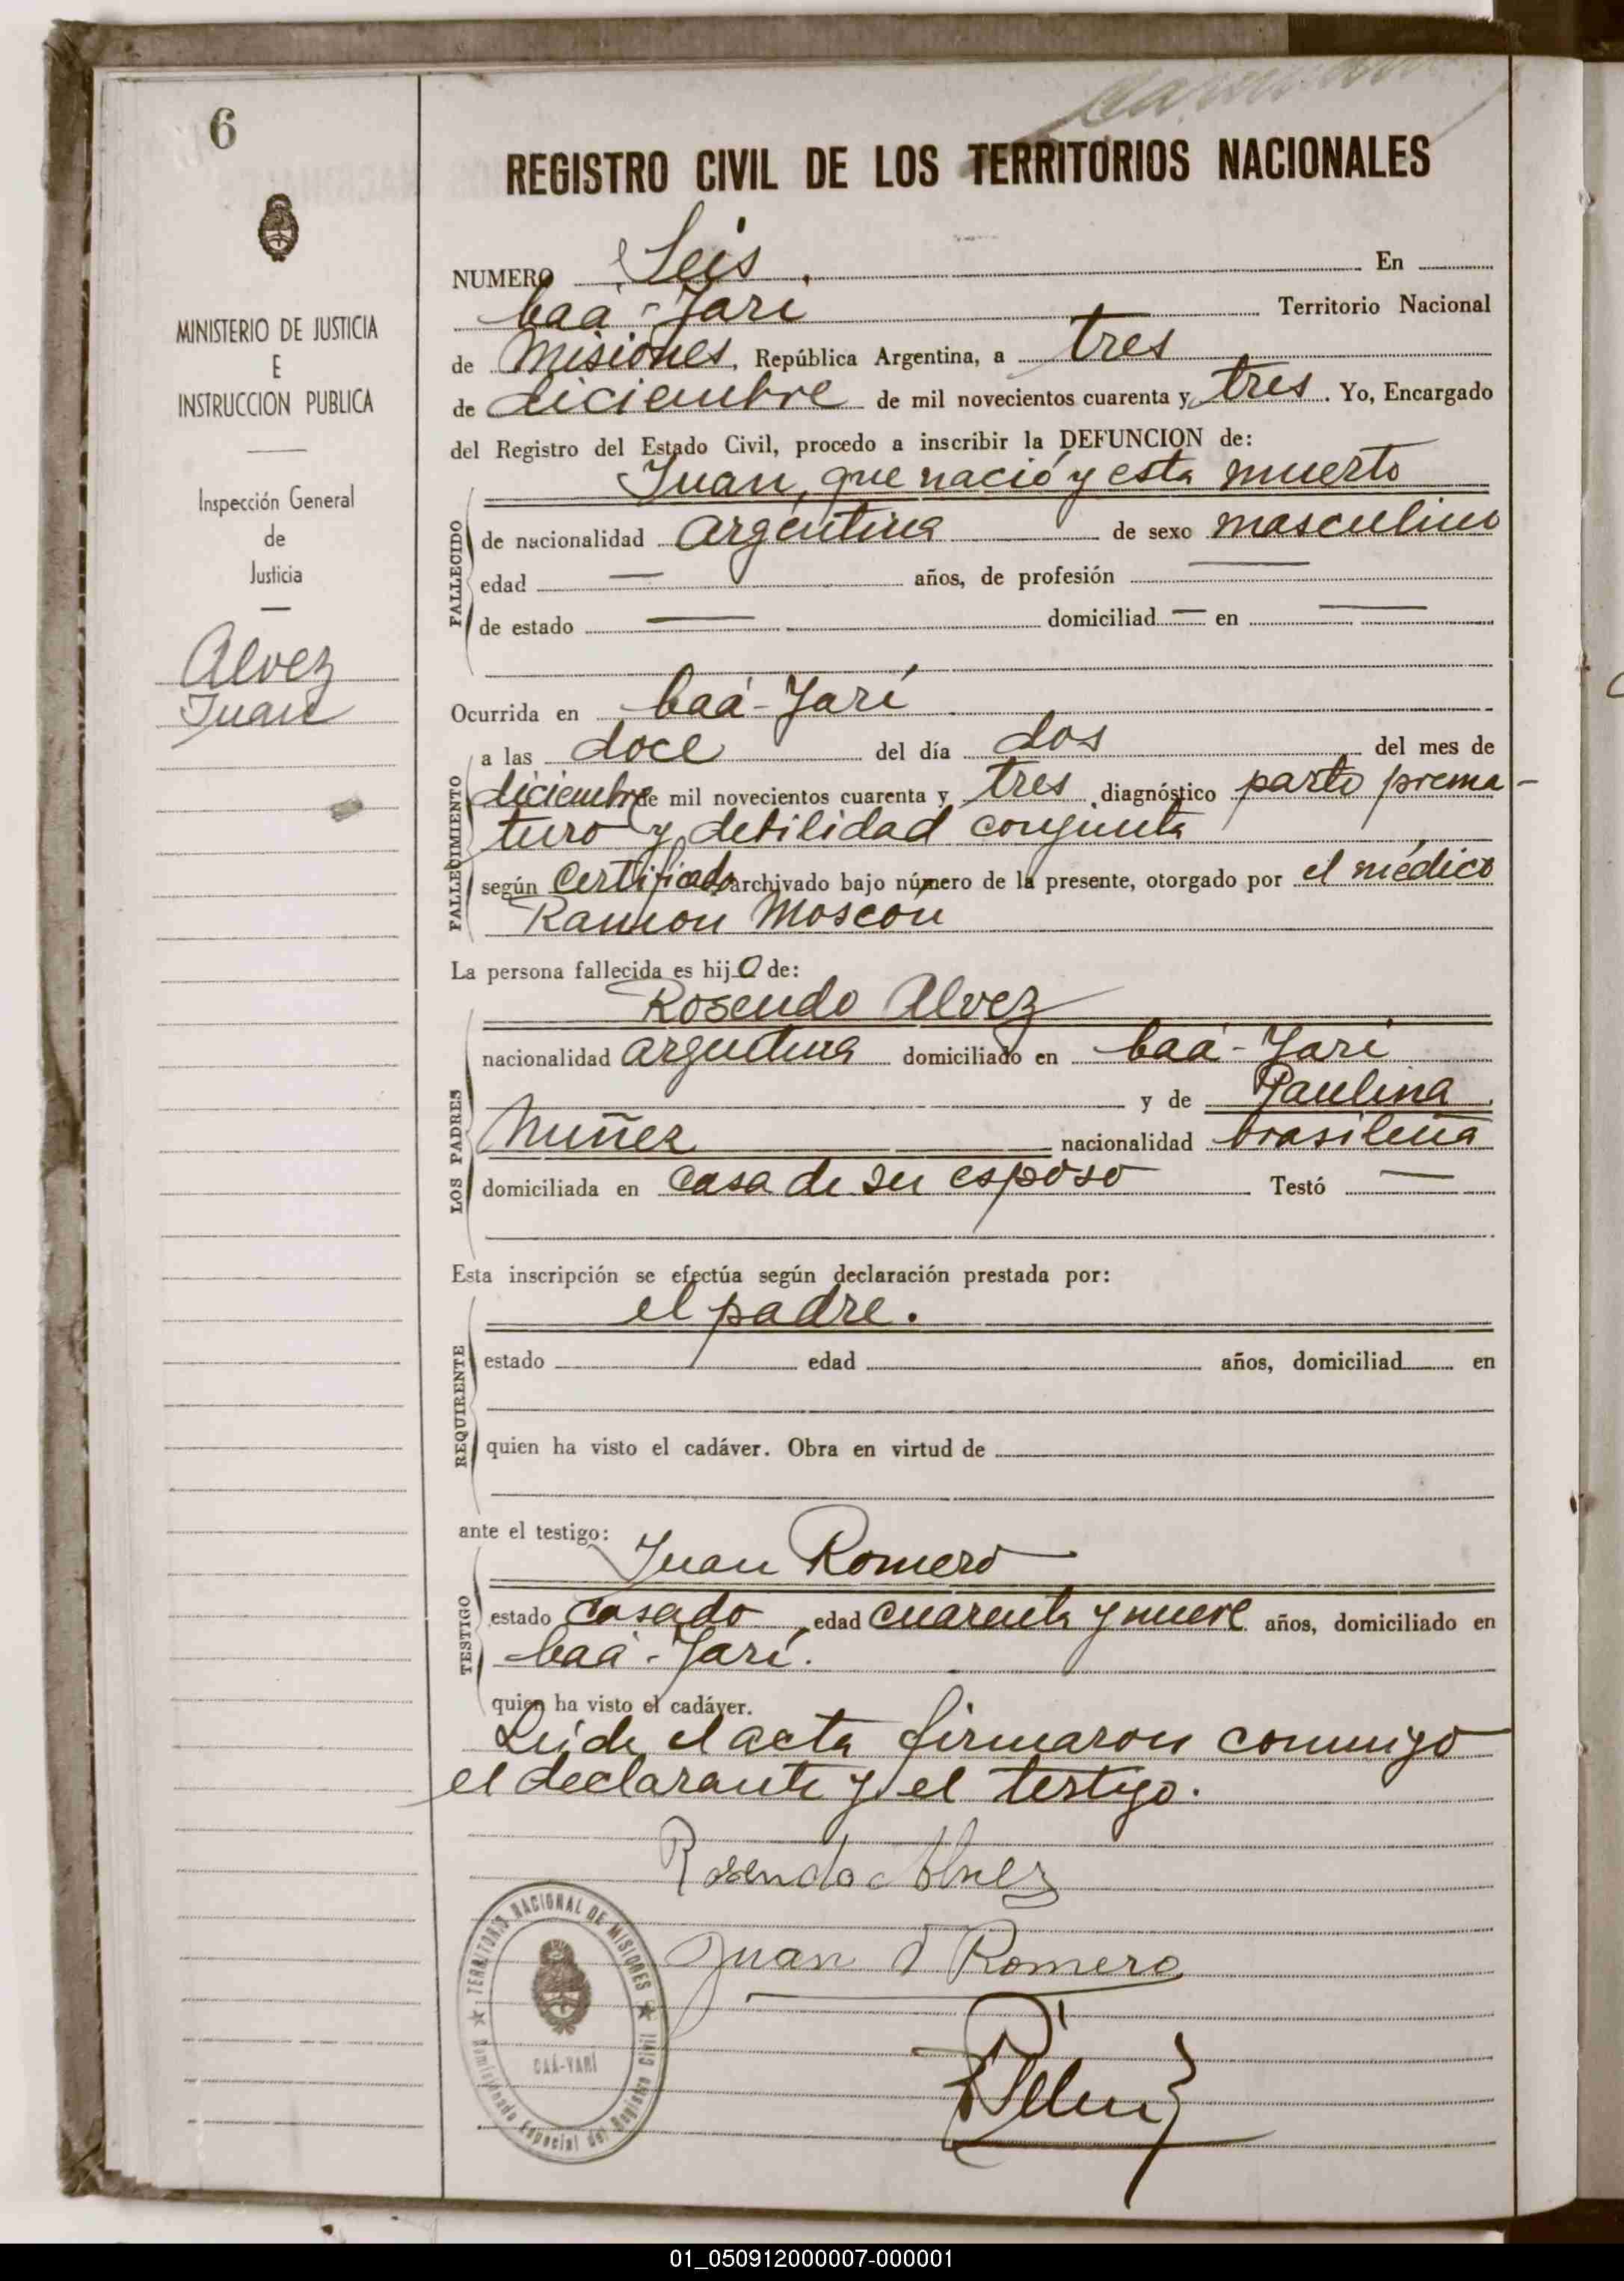 6
REGISTRO CIVIL DE LOS TERRITORIOS NACIONALES
MINISTERIO DE JUSTICIA
E
INSTRUCCION PUBLICA
Inspección General
de
Justicia
Alvez
Juan
NUMERO Seis. En
Caá-Yarí Territorio Nacional
de Misiones, República Argentina, a tres
de diciembre de mil novecientos cuarenta y tres. Yo, Encargado
del Registro del Estado Civil, procedo a inscribir la DEFUNCION de:
Juan, que nació y esta muerto
FALLECIDO
de nacionalidad argentina de sexo masculino
edad — años, de profesión —
de estado — domiciliad — en —
Ocurrida en Caá-Yarí
FALLECIMIENTO
a las doce del día dos del mes de
diciembre de mil novecientos cuarenta y tres diagnóstico parto prema-
turo y debilidad conjunta
según certificado archivado bajo número de la presente, otorgado por el médico
Ramon Moscón
La persona fallecida es hijo de:
LOS PADRES
Rosendo Alvez
nacionalidad argentina domiciliado en Caá-Yarí
y de Paulina
Nuñez nacionalidad brasileña
domiciliada en casa de su esposo Testó —
Esta inscripción se efectúa según declaración prestada por:
REQUIRENTE
el padre.
estado edad años, domiciliad en
quien ha visto el cadáver. Obra en virtud de
ante el testigo:
TESTIGO
Juan Romero
estado casado, edad cuarenta y nueve años, domiciliado en
Caá-Yarí.
quien ha visto el cadáver.
Leida el acta firmaron conmigo
el declarante y el testigo.
Rosendo Alvez
Juan Romero
TERRITORIO NACIONAL DE MISIONES
CAÁ-YARÍ
Comisionado Especial del Registro Civil
01_050912000007-000001